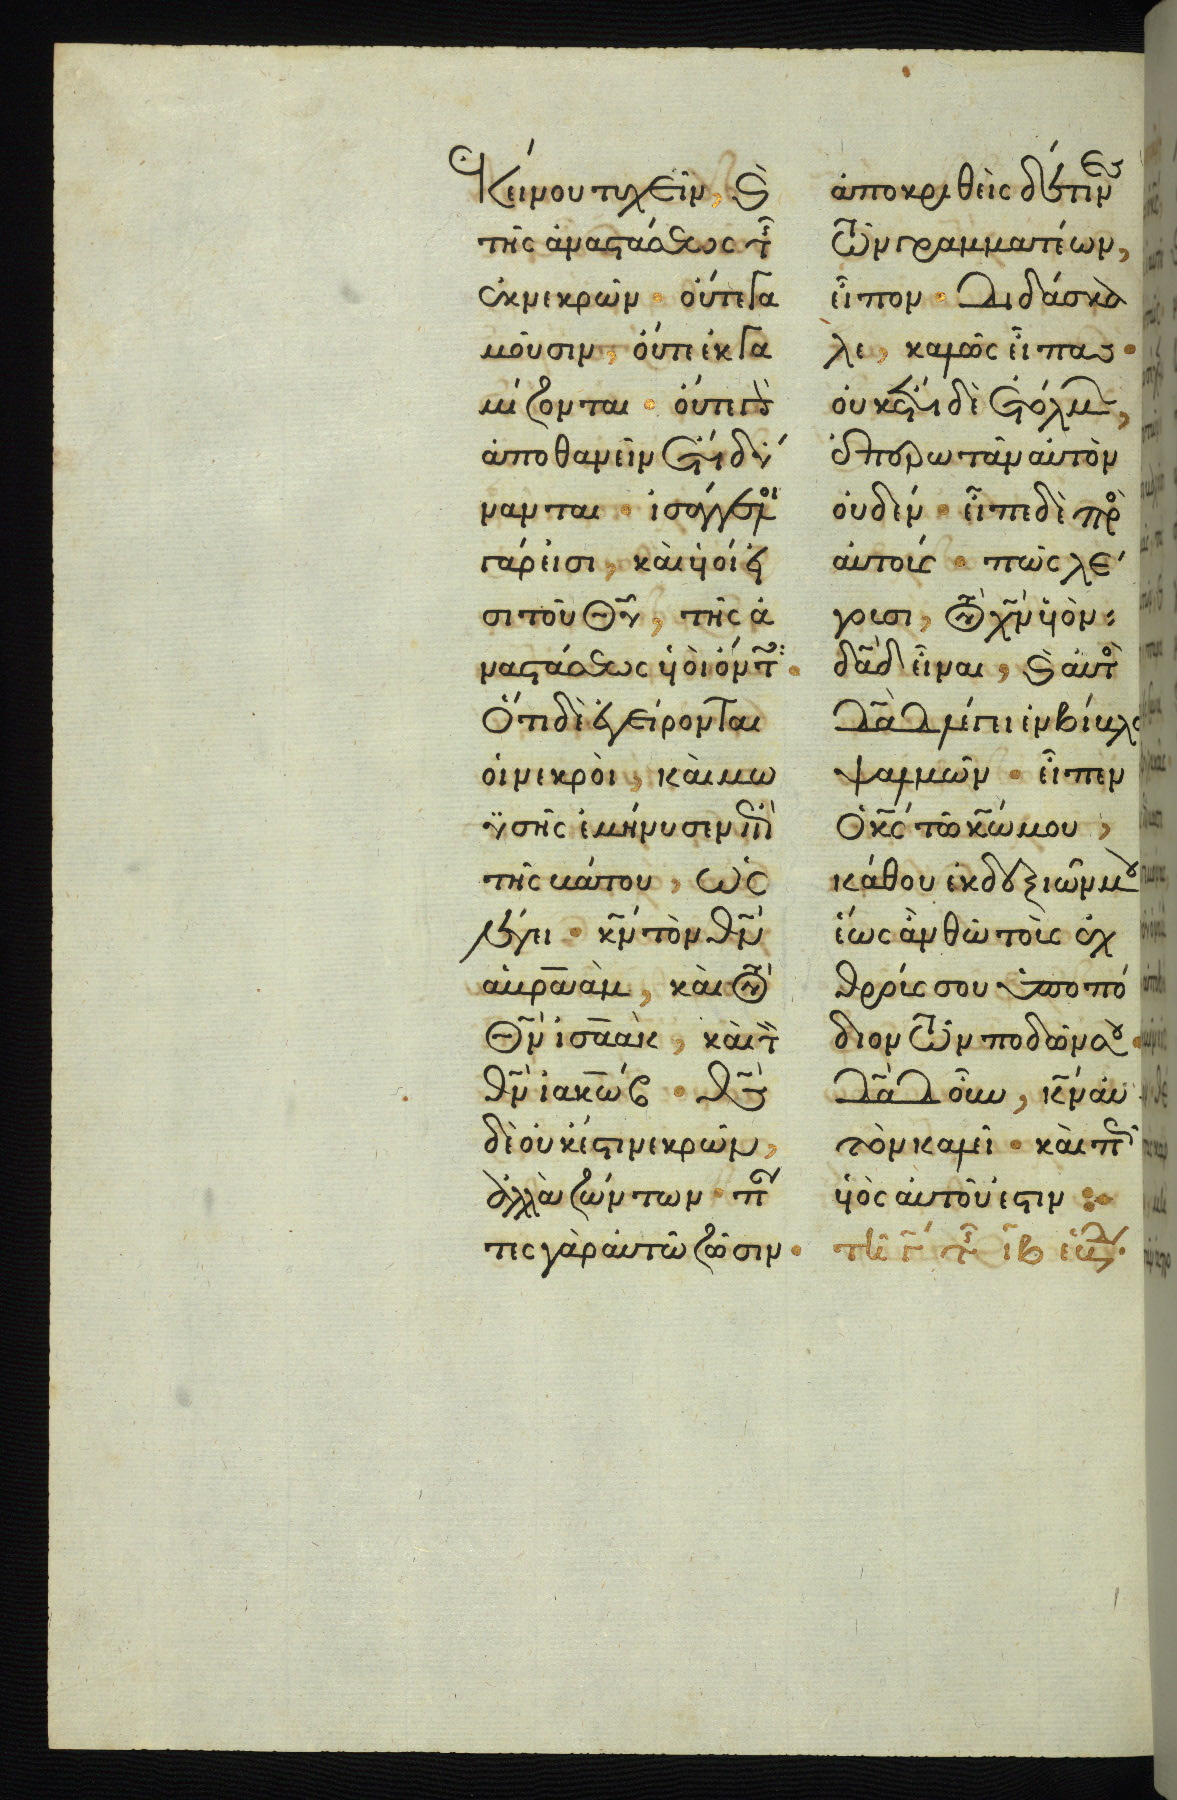 κείνου τυχεῖν, καὶ
τῆς ἀναστάσεως τῆς
ἐκ νεκρῶν · οὔτε γα
μοῦσιν, οὔτε ἐκγα
μίζονται · οὔτε γὰρ
ἀποθανεῖν ἔτι δύ
νανται · ἰσάγγελοι
γάρ εἰσι, καὶ υἱοί εἰ
σι τοῦ Θῦ, τῆς ἀ
ναστάσεως υἱοὶ ὄντες ·
Ὅτι δὲ ἐγείρονται
οἱ νεκροὶ, καὶ μω
ϋσῆς ἐμήνυσεν ἐπὶ
τῆς βάτου, ὡς
λέγει · κν τὸν θν
ἀβραὰμ, καὶ τὸν
Θν ἰσαὰκ, καὶ τὸν
θν ἰακώβ · θς
δὲ οὐκ ἔστι νεκρῶν,
ἀλλὰ ζώντων · πάν
τες γὰρ αὐτῶ ζῶσιν ·
ἀποκριθεὶς δέ τινες
τῶν γραμματέων,
εἶπον · Διδάσκα
λε, καλῶς εἶπας ·
οὐκ ἔτι δὲ ἐτόλμων,
ἐπερωτᾶν αὐτὸν
οὐδέν · εἶπε δὲ πρὸς
αὐτούς · πῶς λέ
γουσι, τὸν χν υἱὸν
δαδ εἶναι, καὶ αὐτὸς
δαδ λέγει ἐν βίβλω
ψαλμῶν · εἶπεν
ὁ κς τῶ κω μου,
κάθου ἐκ δεξιῶν μου
ἕως ἂν θῶ τοὺς ἐχ
θρούς σου ὑποπό
διον τῶν ποδῶν σου ·
δαδ οὖν, κν αὐ
τὸν καλεῖ · καὶ πῶς
υἱὸς αὐτοῦ ἐστιν :·